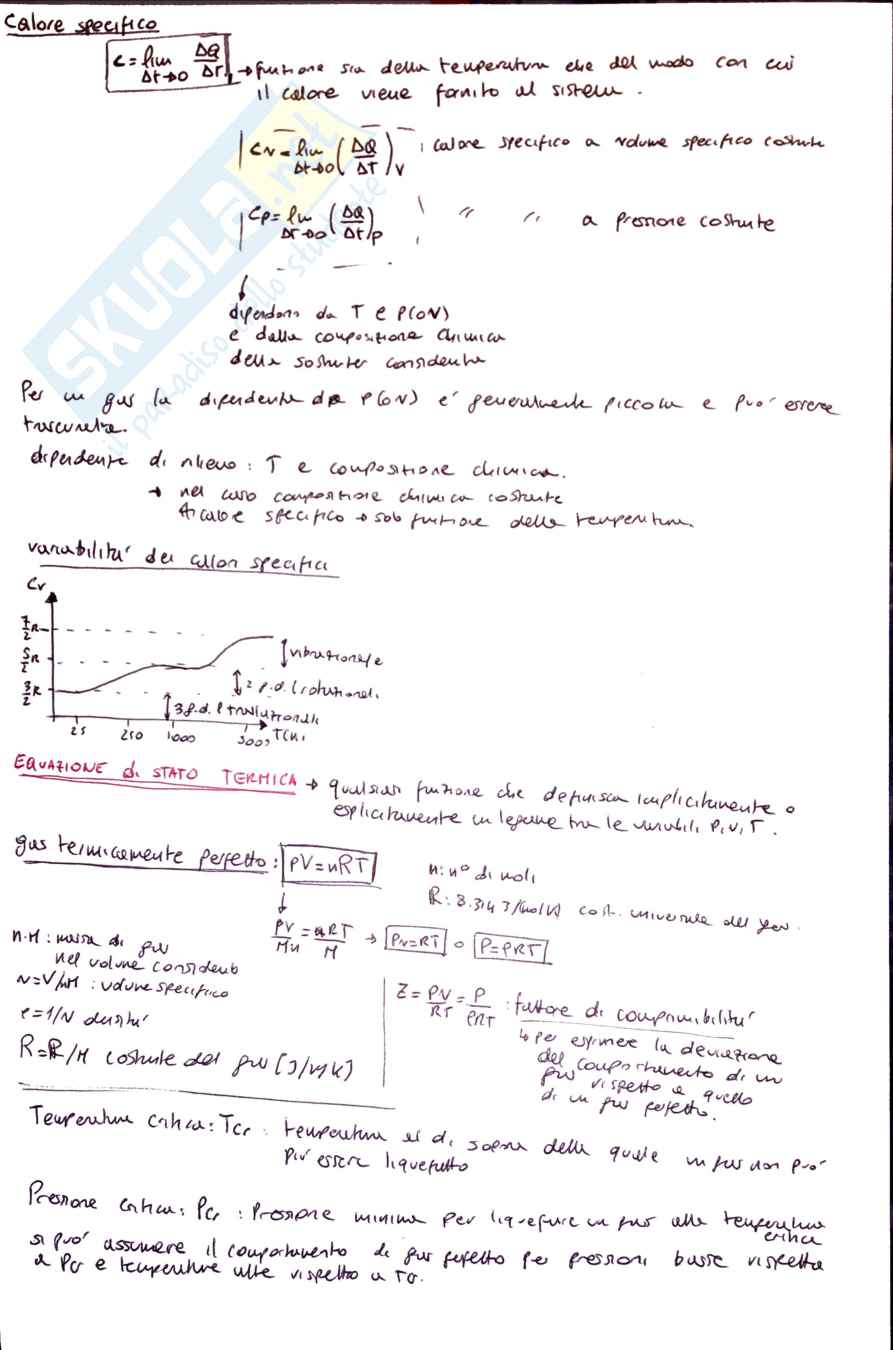 Calore specifico
c = lim Δt→0 ΔQ/ΔT → funzione sia della temperatura che del modo con cui
il calore viene fornito al sistema.
cv = lim Δt→0 (ΔQ/ΔT)v ; calore specifico a volume specifico costante
cp = lim Δt→0 (ΔQ/Δt)p ; " " a pressione costante
dipendono da T e P(o v)
e dalla composizione chimica
della sostanza considerata
Per un gas la dipendenza da P(o v) e' generalmente piccola e puo' essere
trascurata.
dipendenze di rilievo: T e composizione chimica.
→ nel caso composizione chimica costante
calore specifico → solo funzione della temperatura.
variabilita' dei calori specifici
Cv
7/2 R
5/2 R
3/2 R
vibrazionale
2 g.d.l rotazionali
3 g.d.l traslazionali
25 250 1000 3000 T(K)
EQUAZIONE di STATO TERMICA → qualsiasi funzione che definisca implicitamente o
esplicitamente un legame tra le variabili P, v, T.
gas termicamente perfetto: PV = nRT
n: n° di moli
R: 8.314 J/(mol K) cost. universale dei gas.
PV/Mn = nRT/M → Pv=RT o P=ρRT
n·M : massa di gas
nel volume considerato
v=V/nM : volume specifico
ρ=1/v densita'
R=R/M costante del gas [J/kg K]
Z = Pv/RT = P/ρRT : fattore di comprimibilita'
↳ per esprimere la deviazione
del comportamento di un
gas rispetto a quello
di un gas perfetto.
Temperatura critica: Tcr : temperatura al di sopra della quale un gas non puo'
piu' essere liquefatto
Pressione critica: Pcr : Pressione minima per liquefare un gas alla temperatura
critica
si puo' assumere il comportamento di gas perfetto per pressioni basse rispetto
a Pcr e temperature alte rispetto a Tcr.
SKUOLA.net
il paradiso dello studente